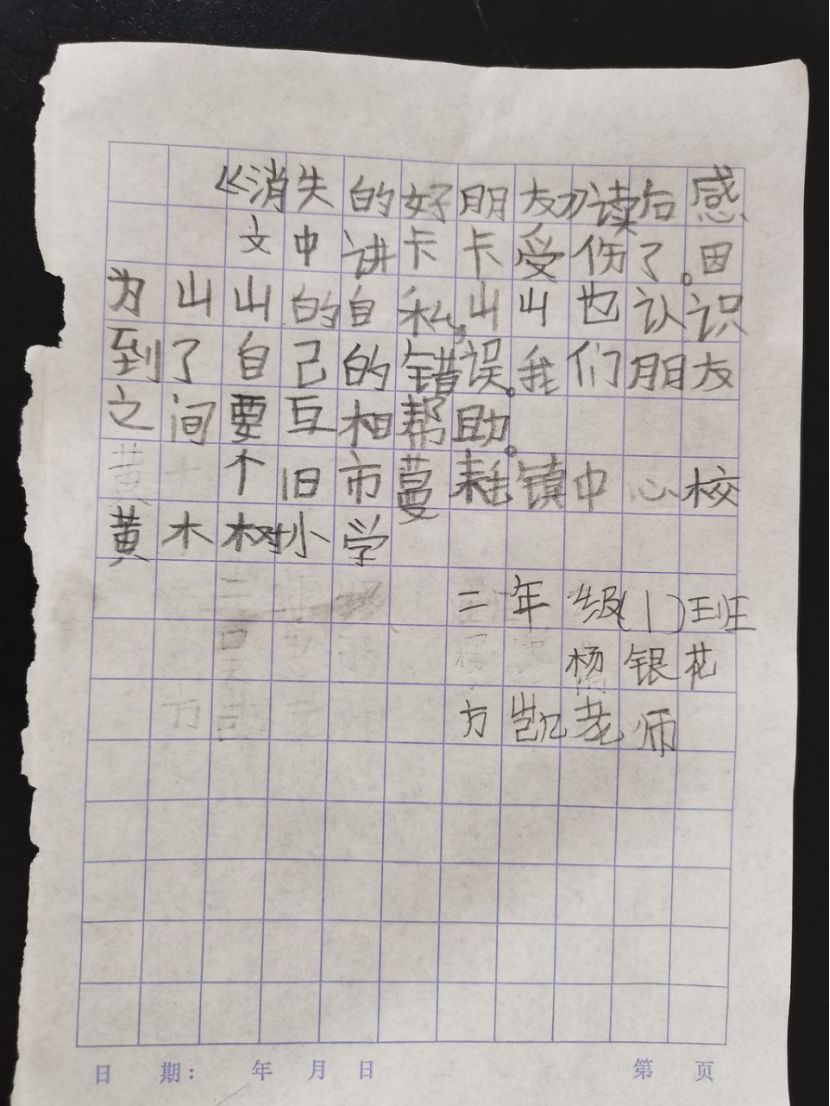 《消失的好朋友》读后感
文中讲卡卡受伤了。因
为山山的自私,山山也认识
到了自己的错误。我们朋友
之间要互相帮助。
个旧市蔓耗镇中心校
黄木树小学
二年级(1)班
杨银花
方凯老师
日期: 年 月 日 第 页